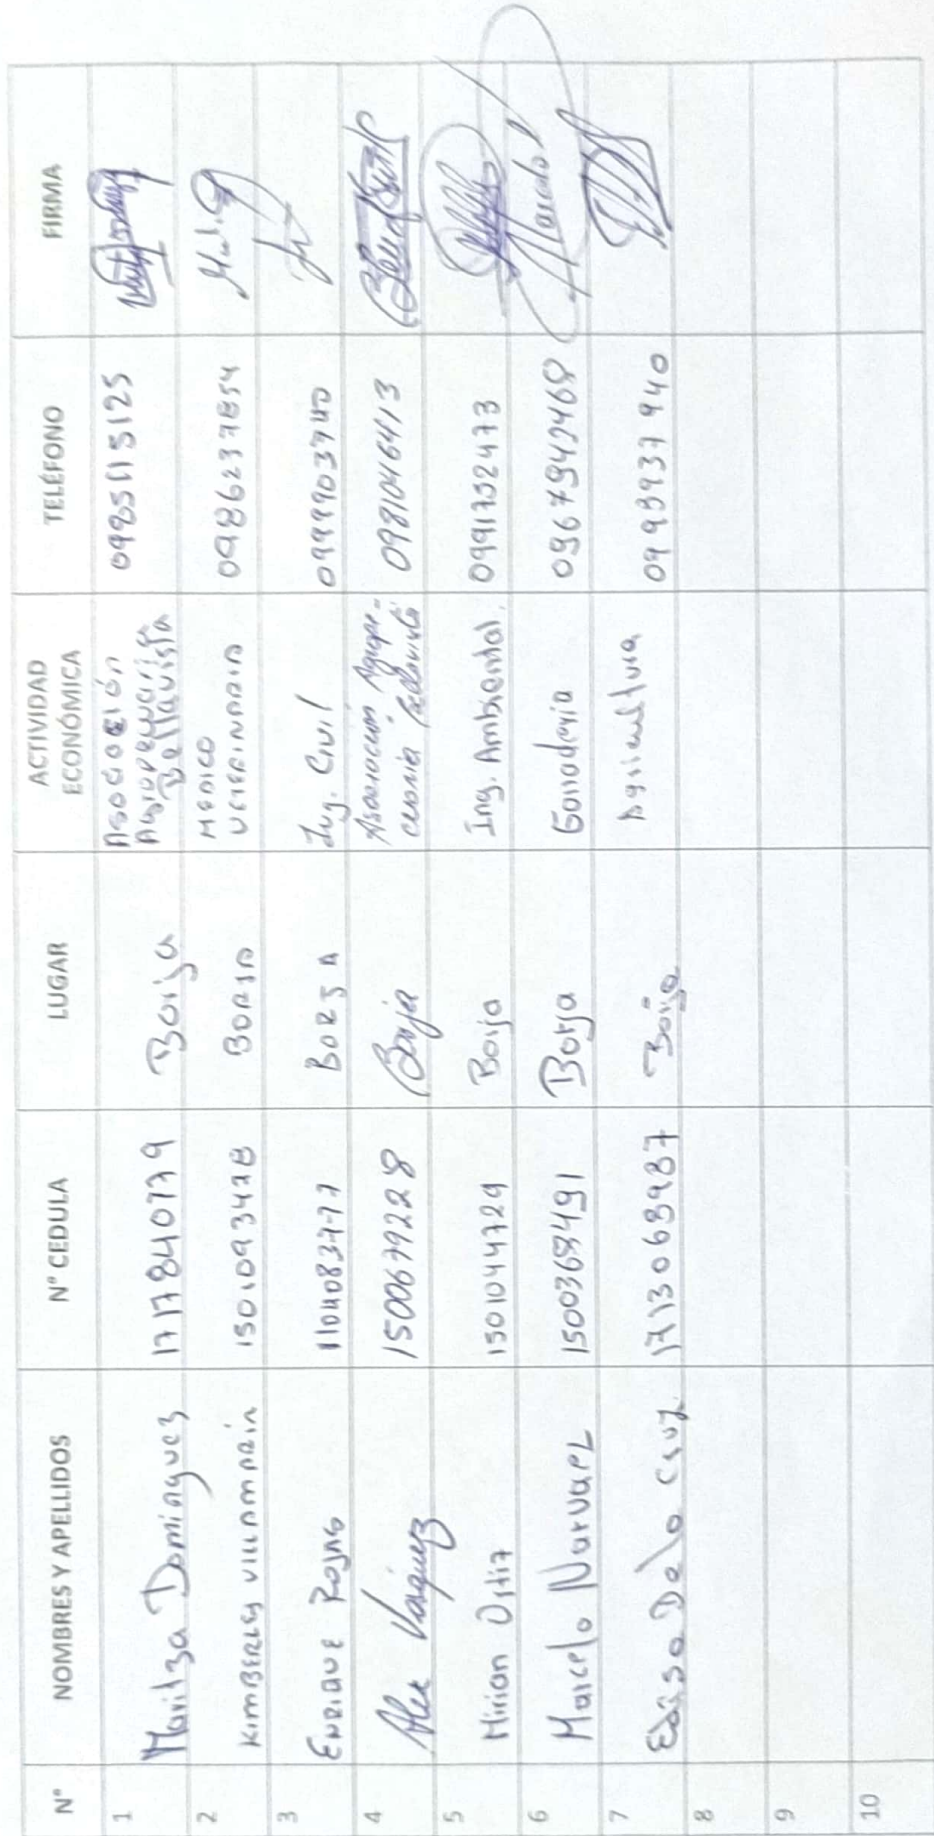 N° NOMBRES Y APELLIDOS N° CEDULA LUGAR ACTIVIDAD ECONÓMICA TELÉFONO FIRMA
1 Maritza Dominguez 1717840779 Borja Asociación Agropecuaria Bellavista 0985115125
2 KIMBERLEY VILLAMARÍN 1501093478 BORJA MEDICO VETERINARIO 0986237854
3 ENRIQUE ROJAS BORJA Ing. Civil
4 Alex Vasquez 1500679228 Borja Asociación Agrope-
cuaria 0981046413
5 Mirian Ortiz 1501044729 Borja Ing. Ambiental. 0991752473
6 Marcelo Narvaez 1500368491 Borja Ganaderia 0967942468 Marcelo N
7 De la Cruz 1713068987 Borja Agricultura 0993937940
8
9
10